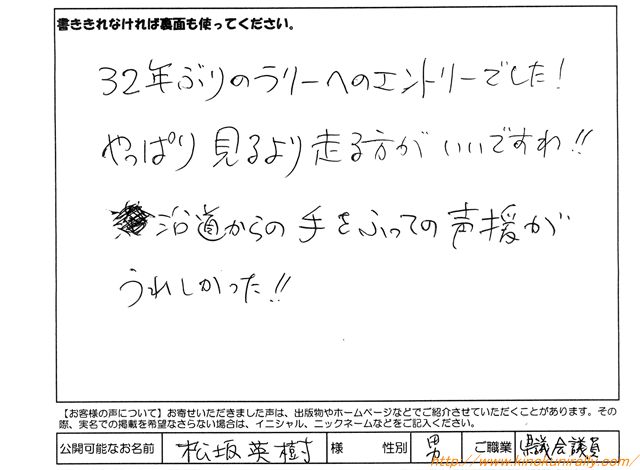 書ききれなければ裏面も使ってください。
32年ぶりのラリーへのエントリーでした！
やっぱり見るより走る方がいいですわ!!
沿道からの手をふっての声援が
うれしかった!!
【お客様の声について】お寄せいただきました声は、出版物やホームページなどでご紹介させていただくことがあります。その
際、実名での掲載を希望なさらない場合は、イニシャル、ニックネームなどをご記入ください。
公開可能なお名前 松坂英樹 様 性別 男 ご職業 県議会議員
http://www.kinokunirally.com/